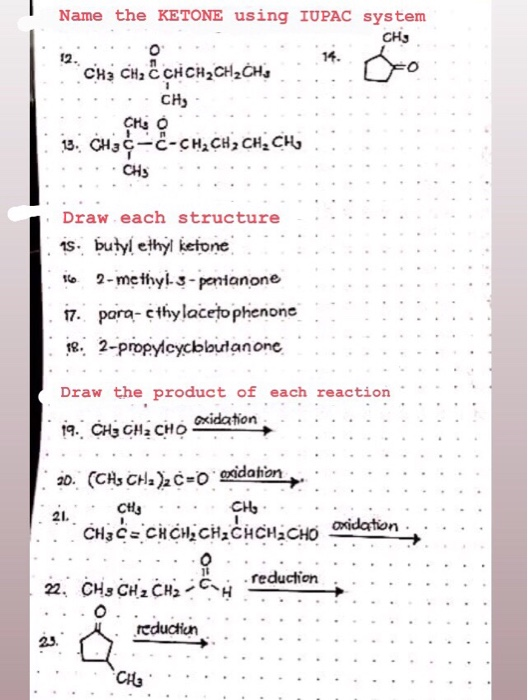 Name the KETONE using IUPAC system
12.
O
CH3 CH2 C CHCH2CH2CH3
CH3
14.
CH3
O
CH3 O
13. CH3C-C-CH2CH2CH2CH3
CH3
Draw each structure
15. butyl ethyl ketone
16 2-methyl-3-pentanone
17. para-ethylacetophenone
18. 2-propylcyclobutanone
Draw the product of each reaction
19. CH3CH2CHO oxidation
20. (CH3CH2)2C=O oxidation
21.
CH3 CH3
CH3C=CHCH2CH2CHCH2CHO oxidation
O
22. CH3CH2CH2-C-H reduction
O
23. reduction
CH3